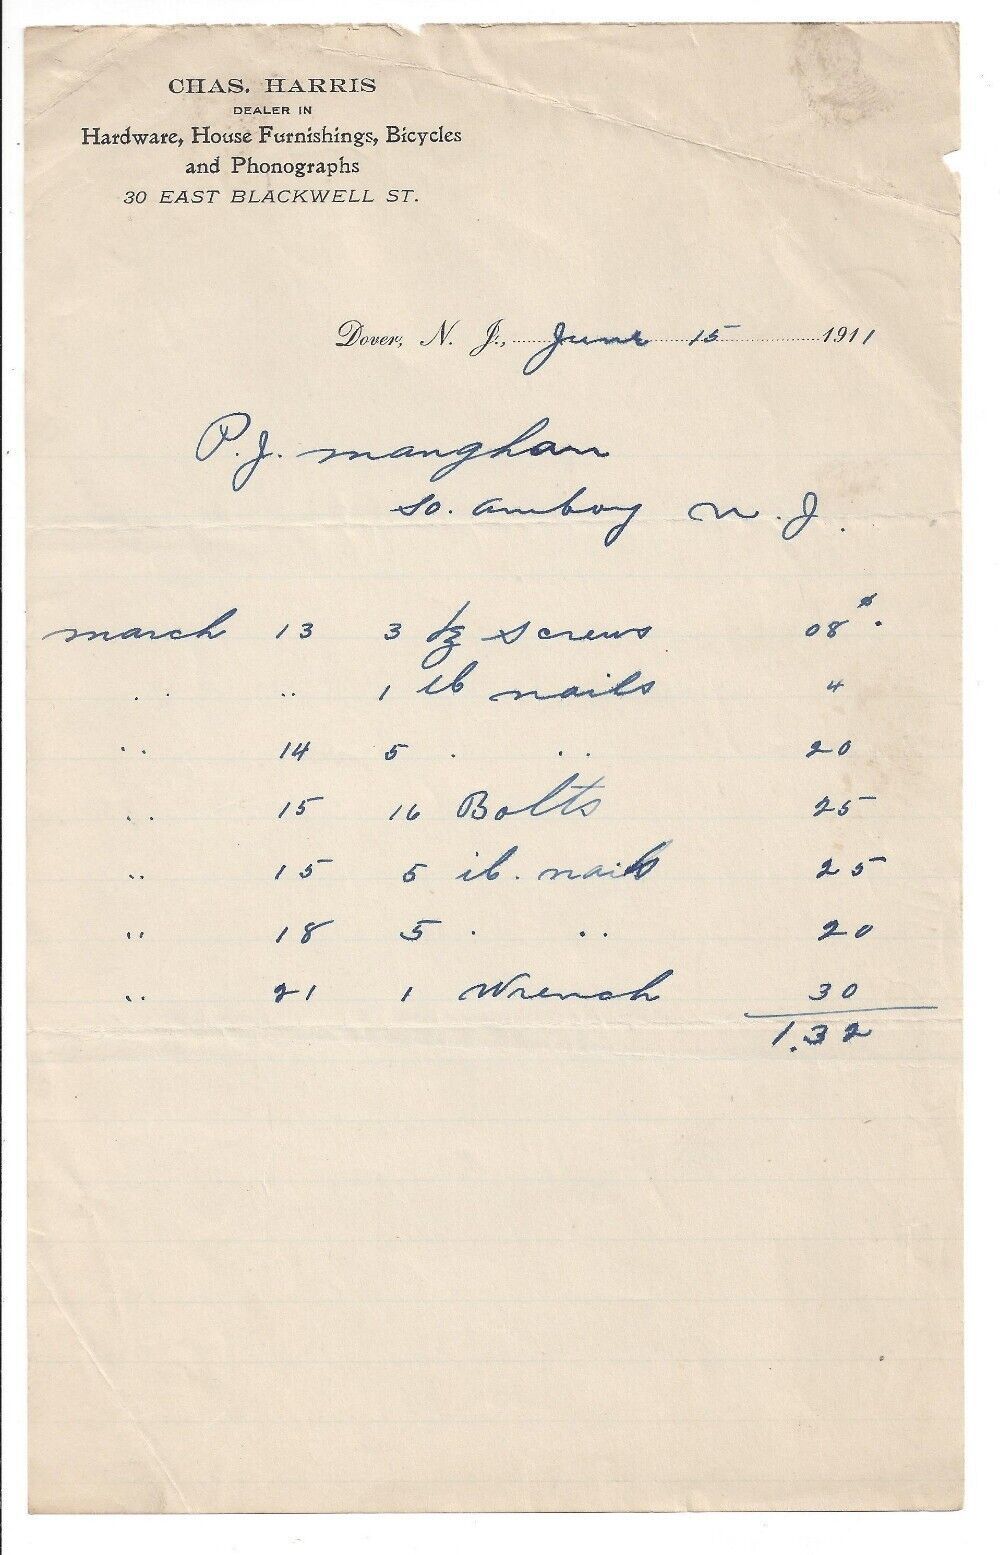 CHAS. HARRIS
DEALER IN
Hardware, House Furnishings, Bicycles
and Phonographs
30 EAST BLACKWELL ST.
Dover, N. J., June 15 1911
P. J. Manghan
So. Amboy N. J.
March 13 3 dz Screws 08¢.
" " 1 lb nails 4
" 14 5 " " 20
" 15 16 Bolts 25
" 15 5 lb. nails 25
" 18 5 " " 20
" 21 1 Wrench 30
1.32